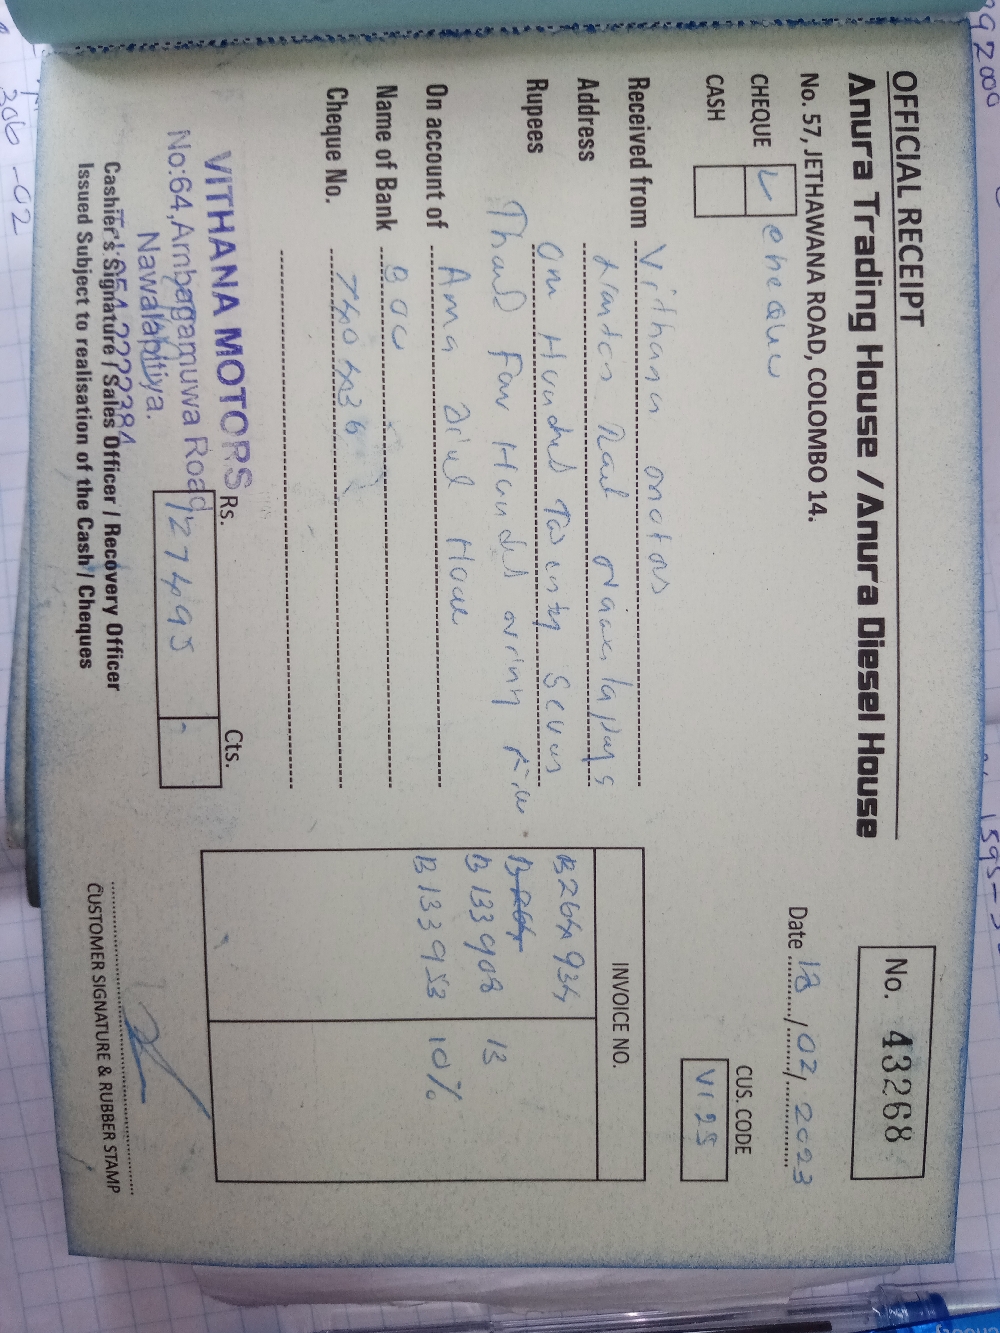 OFFICIAL RECEIPT
Anura Trading House / Anura Diesel House
No. 57, JETHAWANA ROAD, COLOMBO 14.
No. 43268
Date 18/02/2023
CHEQUE cheque
CASH
CUS. CODE
V125
Received from Vithana motors
Address Road
Rupees One Hundred Twenty Seven
Thousand Four Hundred Ninety Five
On account of Anura Diesel House
Name of Bank BOC
Cheque No. 740436
INVOICE NO.
B264934
B264
B133908 13
B133953 10%
VITHANA MOTORS
No:64,Ambagamuwa Road
Nawalapitiya.
Tel:054 2222384
Rs. Cts.
127495 -
Cashier's Signature / Sales Officer / Recovery Officer
Issued Subject to realisation of the Cash / Cheques
CUSTOMER SIGNATURE & RUBBER STAMP
92000
306-02
1595-